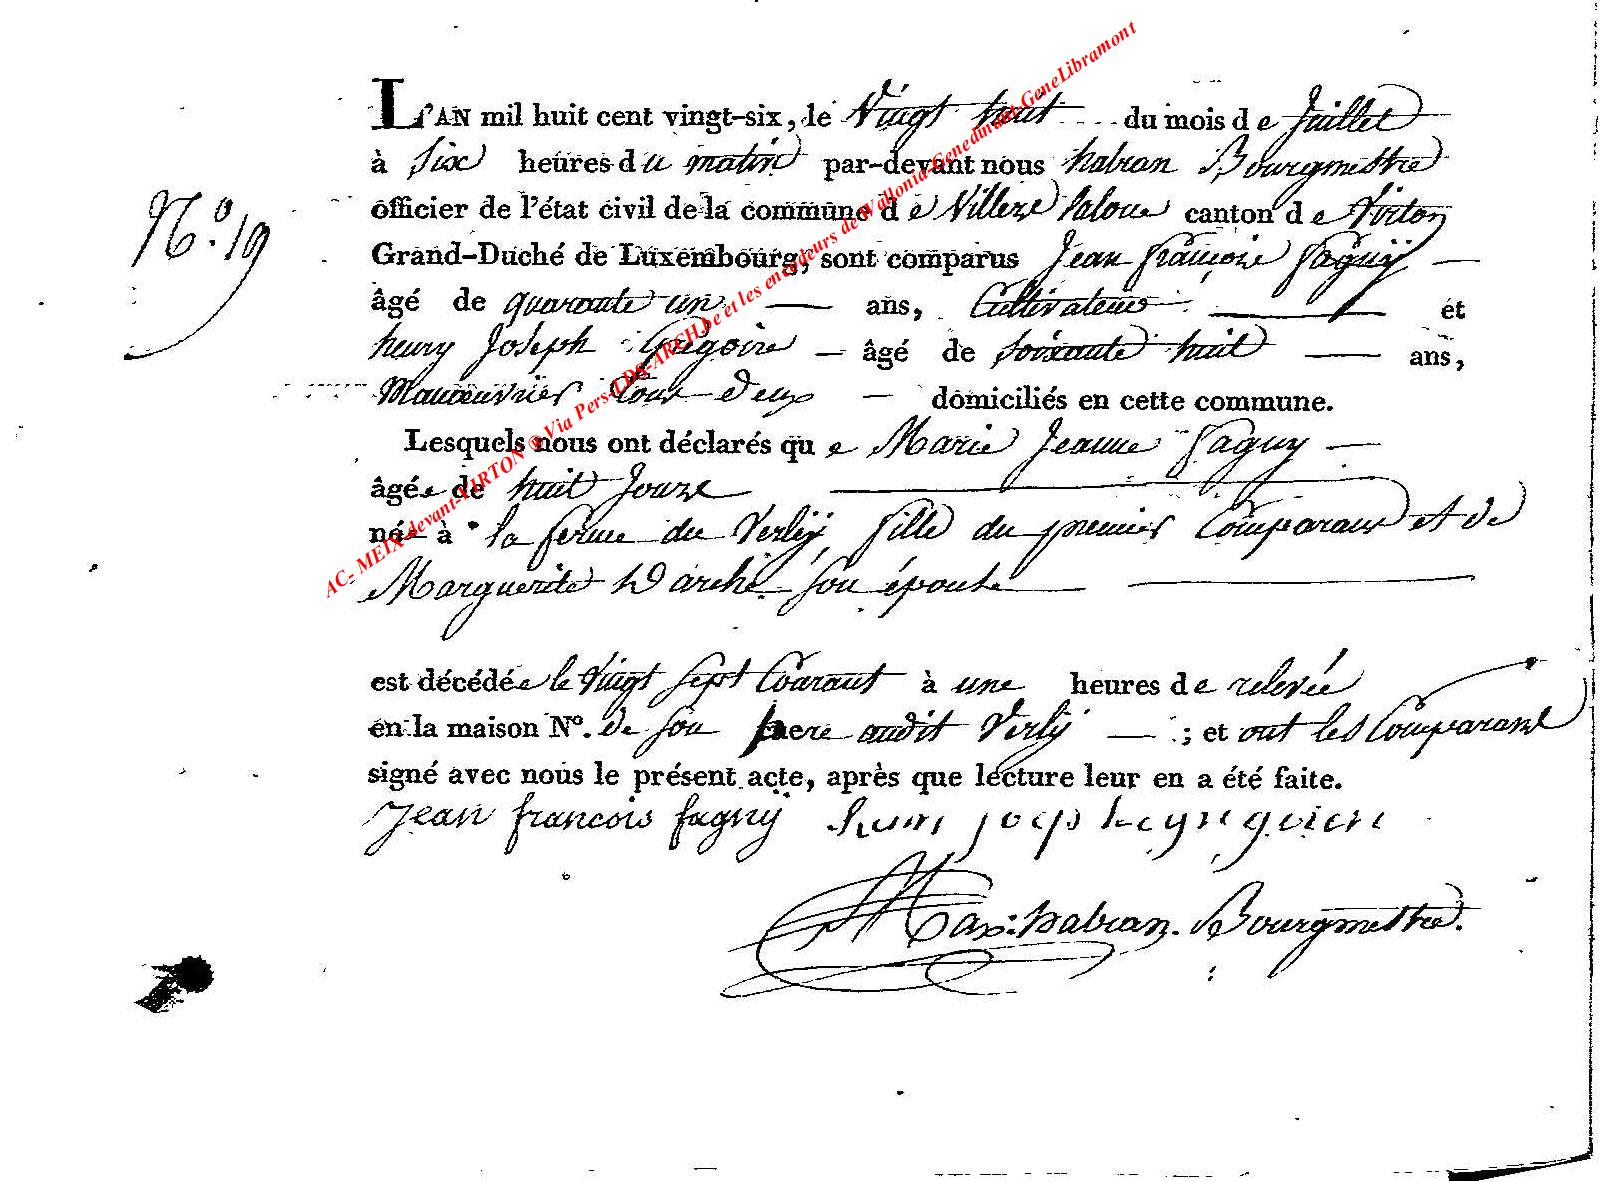 L'AN mil huit cent vingt-six, le Vingt huit du mois de Juillet
à Six heures du matin par-devant nous habran Bourgmestre
officier de l'état civil de la commune de Villers la loue canton de Virton
N.º 19
Grand-Duché de Luxembourg, sont comparus Jean françois fagnÿ —
âgé de quarante un — ans, Cultivateur — et
henry Joseph Grégoire — âgé de soixante huit — ans,
Manoeuvrier tous deux — domiciliés en cette commune.
Lesquels nous ont déclarés que Marie Jeanne fagny —
âgée de huit Jours
née à la ferme du Verlÿ, fille du premier Comparant et de
Marguerite Darche son épouse
est décédée le Vingt Sept Courant à une heures de relevée
en la maison Nº. de son pere audit Verlÿ — ; et ont les Comparans
signé avec nous le présent acte, après que lecture leur en a été faite.
Jean francois fagnÿ
Max: habran. Bourgmestre.
AC- MEIX-devant-VIRTON ® Via Pers-LDS-ARCH.be et les encodeurs de Wallonia-Genedinant-GeneLibramont